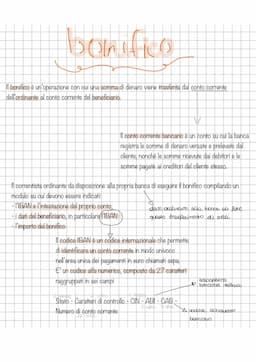 bonifico
Il bonifico è un'operazione con cui una somma di denaro viene trasferita dal conto corrente
dell'ordinante al conto corrente del beneficiario.
Il conto corrente bancario è un conto su cui la banca
registra le somme di denaro versate e prelevate dal
cliente, nonché le somme ricevute dai debitori e le
somme pagate ai creditori del cliente stesso.
Il correntista ordinante da disposizione alla propria banca di eseguire il bonifico compilando un
modulo su cui devono essere indicati:
- l'IBAN e l'intestazione del proprio conto
- i dati del beneficiario, in particolare l'IBAN
- l'importo del bonifico
alla banca di fare
questo trasferimento di
Il codice IBAN è un codice internazionale che permette
di identificare un conto corrente in modo univoco
nell'area unica dei pagamenti in euro chiamati sepa.
E' un codice alfa numerico, composto da 27 caratteri
raggruppati in sei campi
Stato - Caratteri di controllo - CIN - ABI - CAB -
Numero di conto corrente